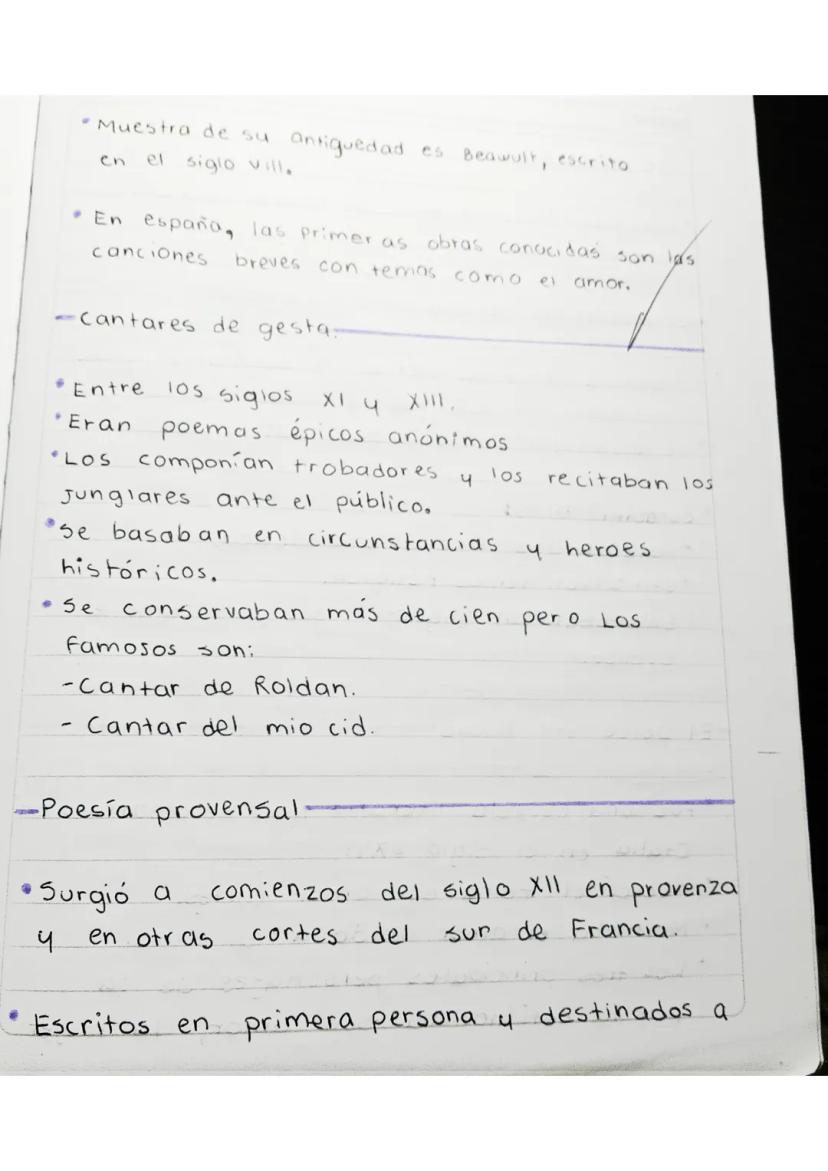 • Muestra de su antiguedad es Beawult, escrito
en el siglo VIII.
• En españa, las primeras obras conocidas son las
canciones breves con temas como el amor.
- Cantares de gesta.
• Entre los siglos XI y XIII.
• Eran poemas épicos anónimos
• Los componían trobadores y los recitaban los
junglares ante el público.
• Se basaban en circunstancias y heroes
históricos.
• Se conservaban más de cien pero Los
famosos son:
- Cantar de Roldan.
- Cantar del mio cid.
- Poesía provensal
• Surgió a comienzos del siglo XII en provenza
y en otras cortes del sur de Francia.
• Escritos en primera persona y destinados a